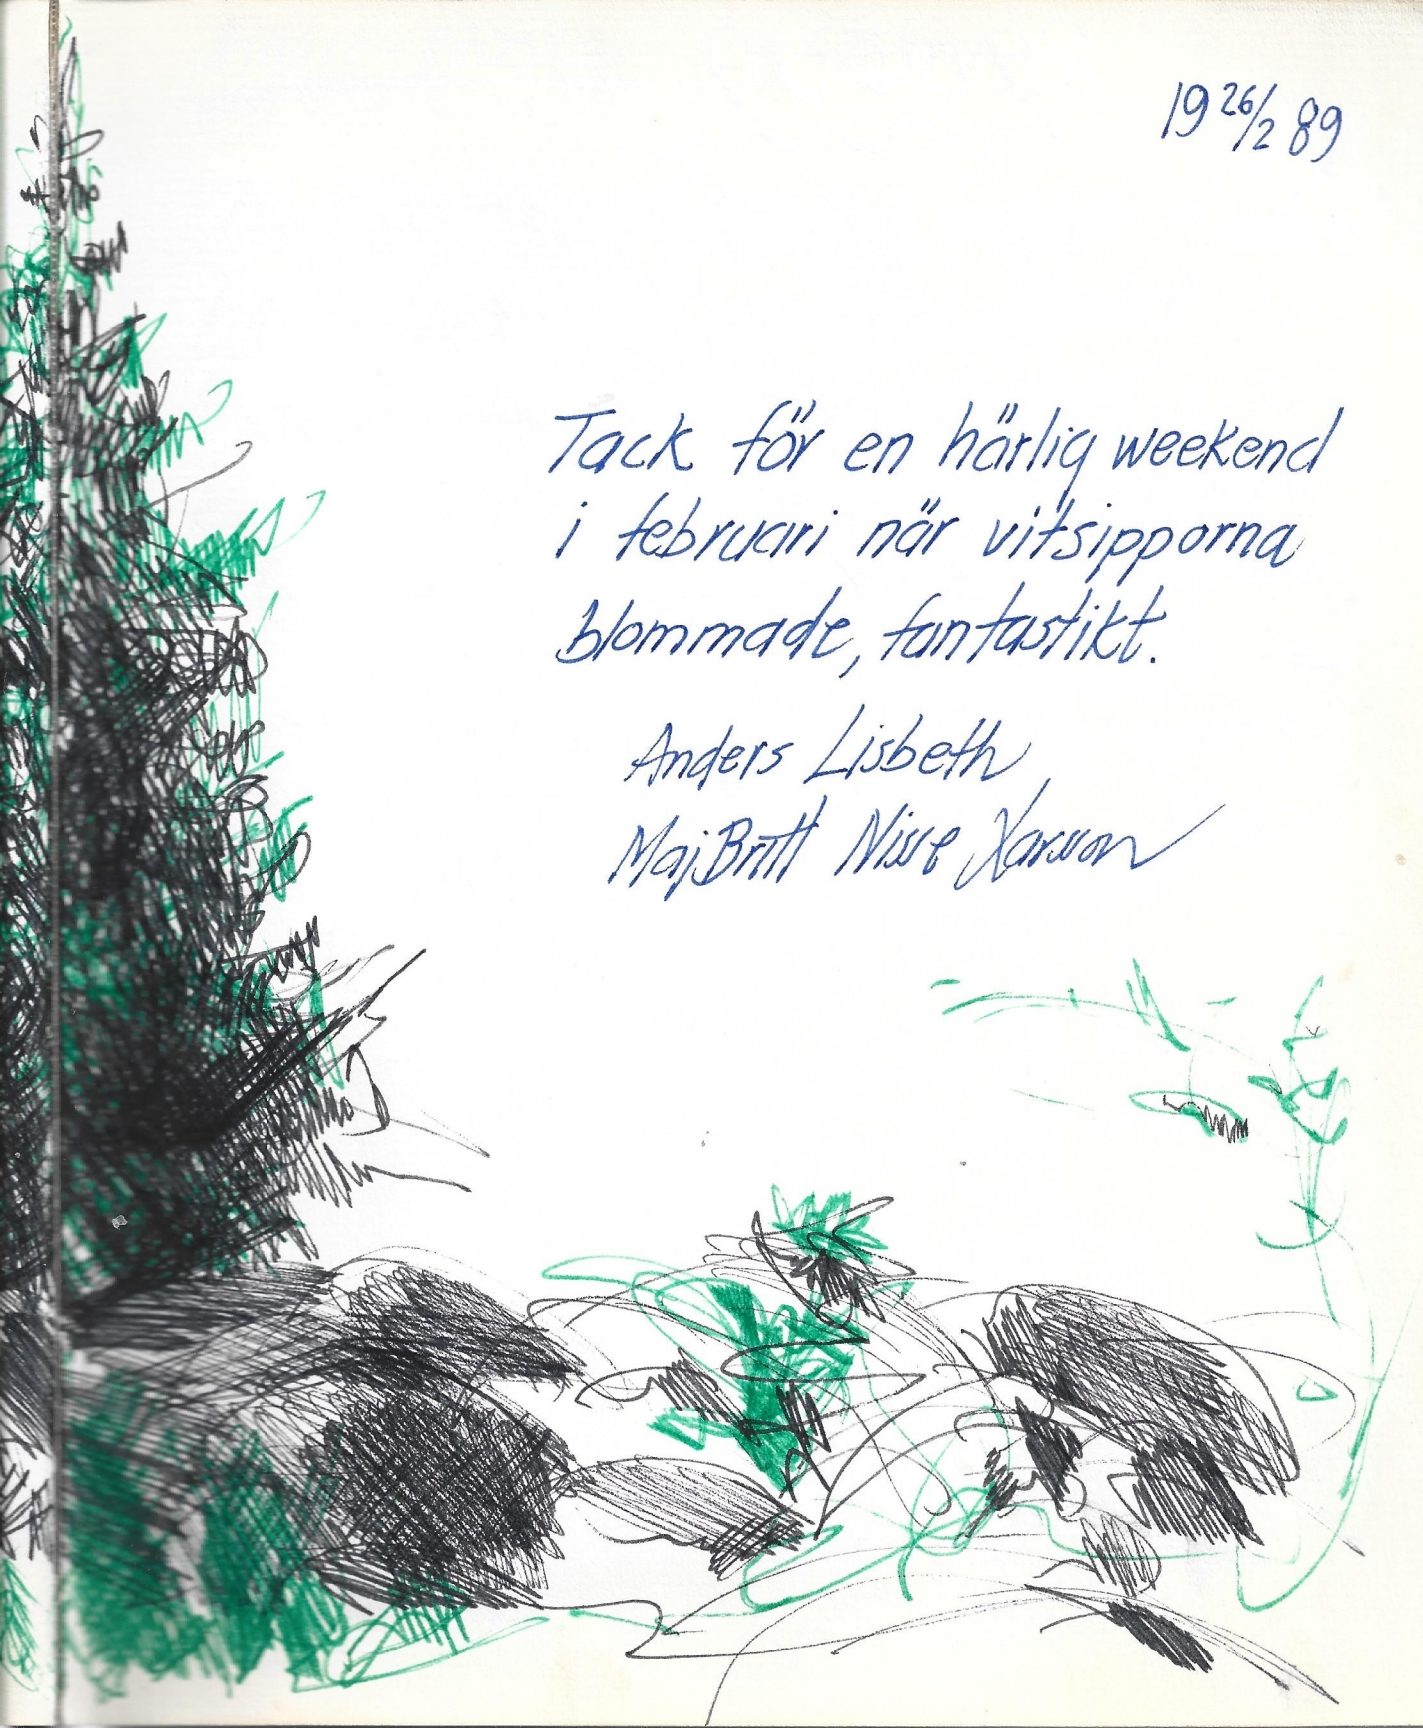 19 26/2 89
Tack för en härlig weekend
i februari när vitsipporna
blommade, fantastikt.
Anders Lisbeth
MajBritt Nisse Larsson